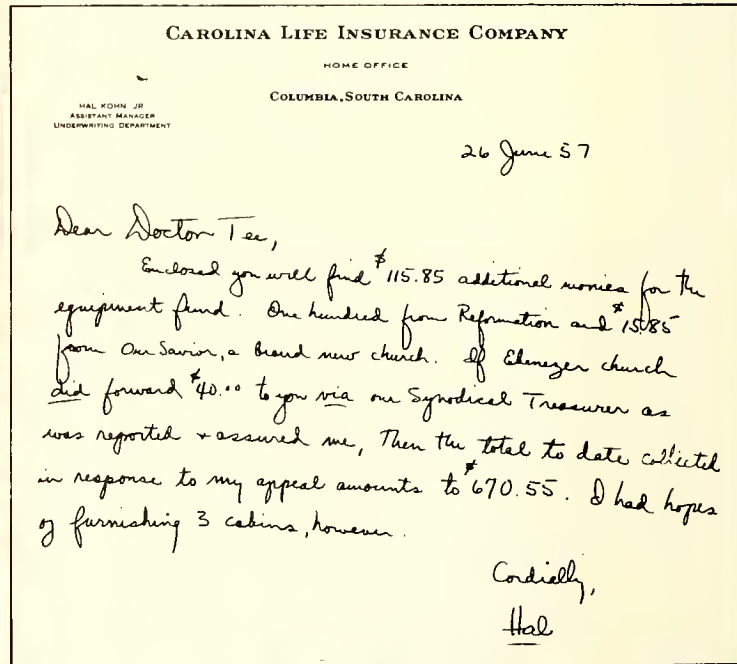 CAROLINA LIFE INSURANCE COMPANY
HOME OFFICE
COLUMBIA, SOUTH CAROLINA
HAL KOHN JR
ASSISTANT MANAGER
UNDERWRITING DEPARTMENT
26 June 57
Dear Doctor Tee,
Enclosed you will find $115.85 additional monies for the
equipment fund. One hundred from Reformation and $15.85
from Our Savior, a brand new church. If Ebenezer church
did forward $40.00 to you via our Synodical Treasurer as
was reported + assured me, Then the total to date collected
in response to my appeal amounts to $670.55. I had hopes
of furnishing 3 cabins, however.
Cordially,
Hal